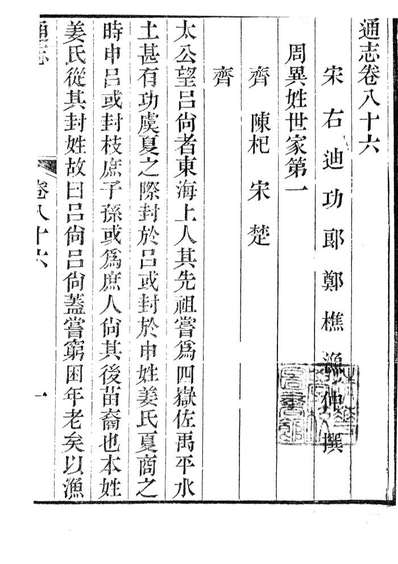 通志卷八十六
宋右迪功郎鄭樵漁仲撰
周異姓世家第一
齊 陳杞 宋 楚
齊
太公望呂尙者東海上人其先祖嘗爲四嶽佐禹平水
土甚有功虞夏之際封於呂或封於申姓姜氏夏商之
時申呂或封枝庶子孫或爲庶人尙其後苗裔也本姓
姜氏從其封姓故曰呂尙呂尙蓋嘗窮困年老矣以漁
通志 卷八十六 一